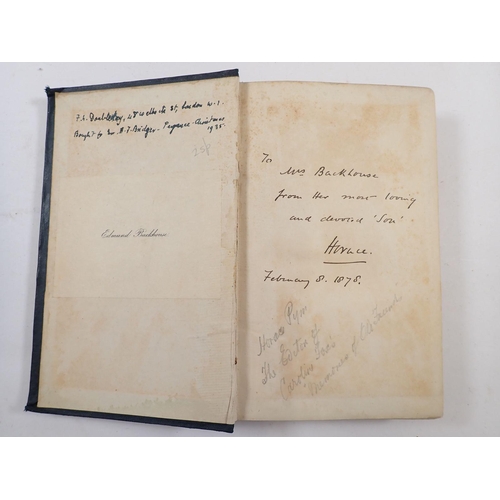 F. S. Doubleday, 48 Welbeck St, London W.1.
Bought for me B. F. Bridger - Penzance - Christmas
1925.
Edmund Backhouse
To
Mrs Backhouse
from Her most loving
and devoted 'Son'
Horace.
February 8. 1878.
Horace Pym
The Editor of
Caroline Fox's
Memories of Old Friends